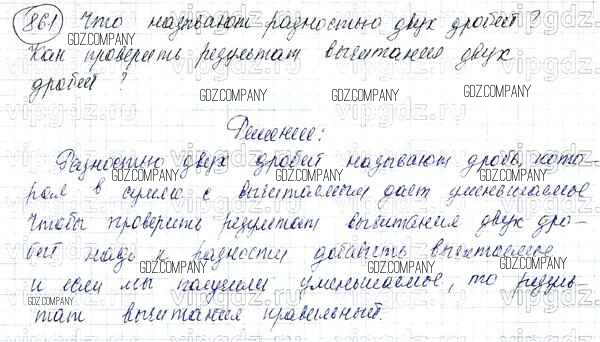 861 Что называют разностью двух дробей?
Как проверить результат вычитания двух
дробей?
Решение:
Разностью двух дробей называют дробь, кото-
рая в сумме с вычитаемым дает уменьшаемое
Чтобы проверить результат вычитания двух дро-
бей надо к разности добавить вычитаемое
и если мы получили уменьшаемое, то резуль
тат вычитания правильный.
GDZ.COMPANY
vipgdz.ru